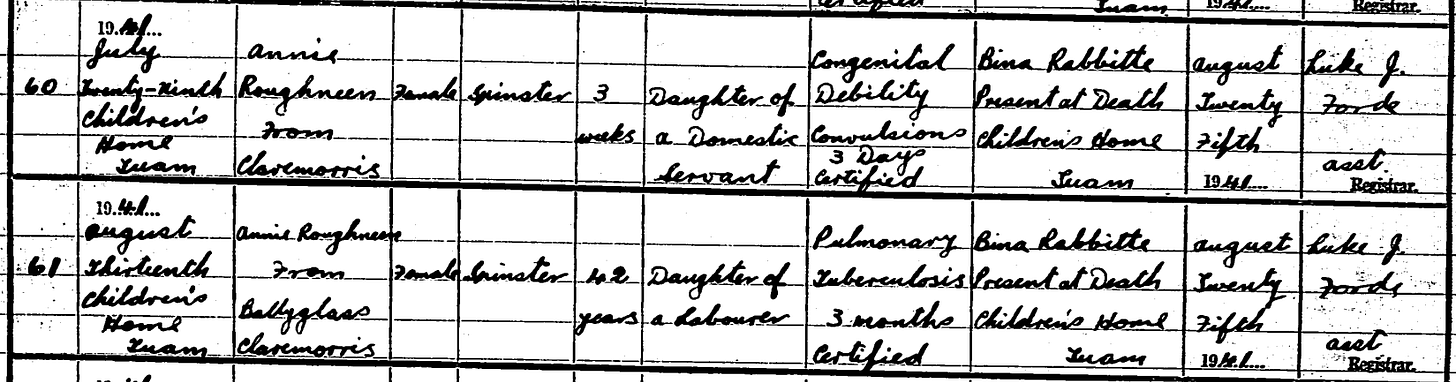 Certified
Tuam
1941....
Registrar.
60
1941...
July
Twenty-Ninth
Children's
Home
Tuam
Annie
Roughneen
From
Claremorris
Female
Spinster
3
weeks
Daughter of
a Domestic
Servant
Congenital
Debility
Convulsions
3 Days
Certified
Bina Rabbitte
Present at Death
Children's Home
Tuam
August
Twenty
Fifth
1941....
Luke J.
Forde
asst.
Registrar.
61
1941...
August
Thirteenth
Children's
Home
Tuam
Annie Roughneen
From
Ballyglass
Claremorris
Female
Spinster
42
years
Daughter of
a Labourer
Pulmonary
Tuberculosis
3 months
Certified
Bina Rabbitte
Present at Death
Children's Home
Tuam
August
Twenty
Fifth
1941....
Luke J.
Forde
asst
Registrar.